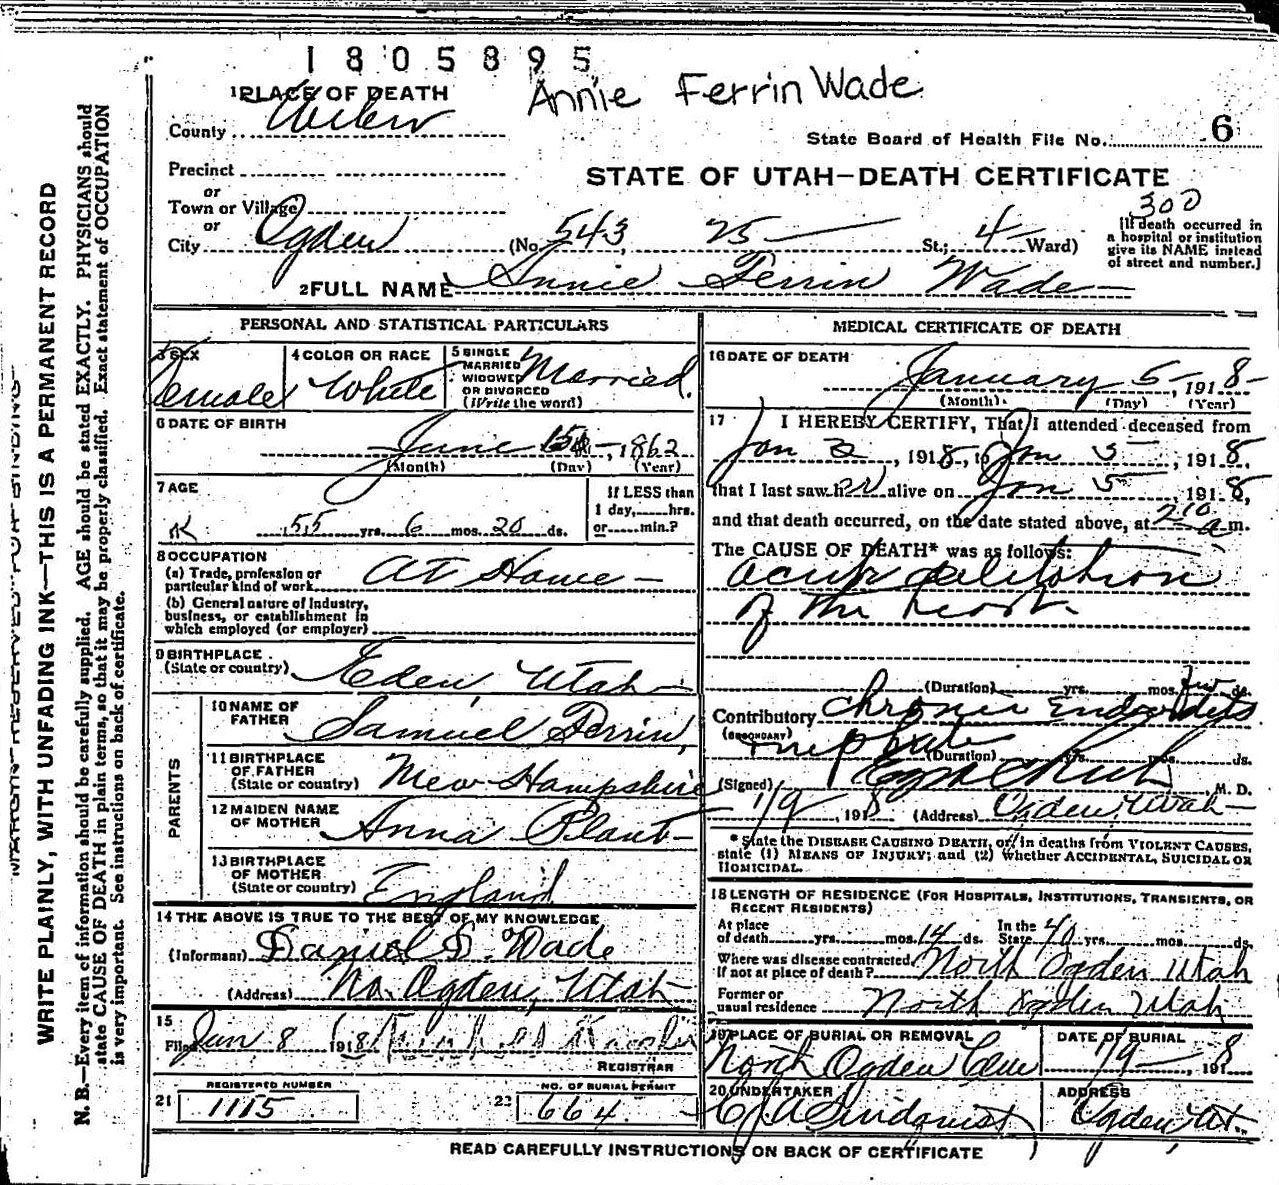 1805895
Annie Ferrin Wade
1 PLACE OF DEATH
County Weber
State Board of Health File No. 6
Precinct
or
Town or Village
or
STATE OF UTAH—DEATH CERTIFICATE
300
City Ogden (No. 543, 25 St.; 4 Ward)
[If death occurred in
a hospital or institution
give its NAME instead
of street and number.]
2 FULL NAME Annie Ferrin Wade
PERSONAL AND STATISTICAL PARTICULARS
3 SEX Female
4 COLOR OR RACE White
5 SINGLE
MARRIED
WIDOWED
OR DIVORCED
(Write the word) Married.
6 DATE OF BIRTH
June 15, 1862
(Month) (Day) (Year)
7 AGE
55 yrs. 6 mos. 20 ds.
If LESS than
1 day,....hrs.
or....min.?
8 OCCUPATION
(a) Trade, profession or
particular kind of work At Home
(b) General nature of Industry,
business, or establishment in
which employed (or employer)
9 BIRTHPLACE
(State or country) Eden Utah
PARENTS
10 NAME OF
FATHER Samuel Ferrin,
11 BIRTHPLACE
OF FATHER
(State or country) New Hampshire
12 MAIDEN NAME
OF MOTHER Anna Plant
13 BIRTHPLACE
OF MOTHER
(State or country) England
14 THE ABOVE IS TRUE TO THE BEST OF MY KNOWLEDGE
(Informant) Daniel S. Wade
(Address) No. Ogden, Utah
15
Filed Jan 8 1918
REGISTRAR
REGISTERED NUMBER
21 1115
NO. OF BURIAL PERMIT
22 664
MEDICAL CERTIFICATE OF DEATH
16 DATE OF DEATH
January 5, 1918
(Month) (Day) (Year)
17 I HEREBY CERTIFY, That I attended deceased from
Jan 2, 1918, to Jan 5, 1918,
that I last saw her alive on Jan 5, 1918,
and that death occurred, on the date stated above, at 2 10 a m.
The CAUSE OF DEATH* was as follows:
acute dilitation
of the heart.
(Duration) yrs. mos. few ds.
Contributory Chronic Endocarditis
(SECONDARY) nephritis
(Duration) yrs. mos. ds.
(Signed) Ezra C Rich M. D.
1/9, 1918 (Address) Ogden, Utah
* State the DISEASE CAUSING DEATH, or, in deaths from VIOLENT CAUSES,
state (1) MEANS OF INJURY; and (2) whether ACCIDENTAL, SUICIDAL OR
HOMICIDAL.
18 LENGTH OF RESIDENCE (FOR HOSPITALS, INSTITUTIONS, TRANSIENTS, OR
RECENT RESIDENTS)
At place
of death yrs. mos. 14 ds. In the
State 40 yrs. mos. ds.
Where was disease contracted,
If not at place of death? North Ogden Utah
Former or
usual residence North Ogden Utah
19 PLACE OF BURIAL OR REMOVAL
North Ogden Cem
DATE OF BURIAL
1/9, 1918
20 UNDERTAKER
C J A Lindquist
ADDRESS
Ogden, Ut.
READ CAREFULLY INSTRUCTIONS ON BACK OF CERTIFICATE
MARGIN RESERVED FOR BINDING
WRITE PLAINLY, WITH UNFADING INK—THIS IS A PERMANENT RECORD
N. B.—Every item of information should be carefully supplied. AGE should be stated EXACTLY. PHYSICIANS should
state CAUSE OF DEATH in plain terms, so that it may be properly classified. Exact statement of OCCUPATION
is very important. See instructions on back of certificate.